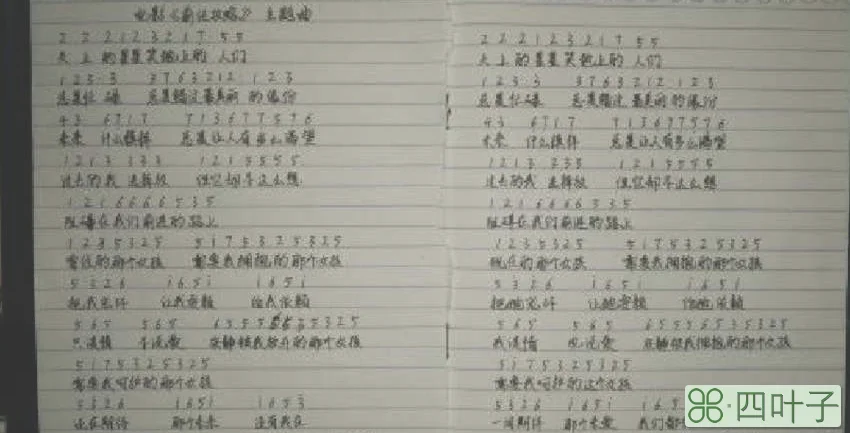 电影《前任攻略》主题曲
2 2 2 1 2 3 2 1 7 5 5
天上的星星笑地上的人们
1 2 3 3 3 7 6 3 2 1 2 1 2 3
总是忙碌 总是错过最美丽的缘份
4 3 6 7 1 7 7 1 3 6 7 7 5 7 6
未来 什么模样 总是让人有多么渴望
1 2 1 3 3 3 3 1 2 1 3 5 5 5
过去的我 去释放 但它却不这么想
1 2 1 6 6 6 6 5 3 5
阻碍在我们前进的路上
1 2 3 5 3 2 5 5 1 7 5 3 2 5 3 2 5
的那个女孩 需要我拥抱的那个女孩
5 3 2 6 1 6 5 1 1 6 5 1
把我 让我 给我依赖
5 6 5 5 6 5 6 5 5 3 2 5
只谈情 不说爱 在静 我 的那个女孩
5 1 7 5 3 2 5 3 2 5
需要我呵护的那个女孩
5 3 2 6 1 6 5 1 1 6 5 3
还在期待 那个未来 还有我在
2 2 2 1 2 3 2 1 7 5 5
天上的星星笑地上的人们
1 2 3 3 3 7 6 3 2 1 2 1 2 3
总是忙碌 总是错过最美丽的缘份
4 3 6 7 1 7 7 1 3 6 7 7 5 7 6
未来 什么模样 总是让人有多么渴望
1 2 1 3 2 3 5 1 2 1 3 5 5 5
过去的我 去释放 但它却不这么想
1 2 1 6 6 6 6 3 3 5
阻碍在我们前进的路上
1 2 3 5 3 2 5 5 1 7 5 3 2 5 3 2 5
现在的那个女孩 需要我拥抱的那个女孩
5 3 2 6 1 6 5 1 1 6 5 1
把她 让她 给她依赖
5 6 5 5 6 5 6 5 5 5 6 5 3 5 3 2 5
我谈情 也说爱 在静 我拥抱的那个女孩
5 1 7 5 3 2 5 3 2 5
需要我呵护的这个女孩
5 3 2 6 1 6 5 1 1 6 5
一同期待 那个未来 我们都
四叶子